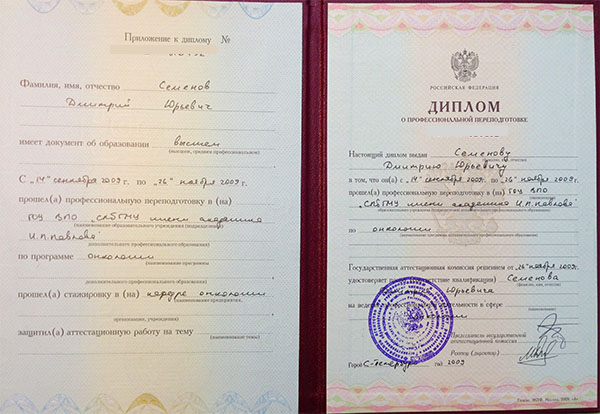 Приложение к диплому №
Фамилия, имя, отчество Семенов
Дмитрий Юрьевич
имеет документ об образовании высшем
(высшем, среднем профессиональном)
С "14" сентября 2009 г. по "26" ноября 2009 г.
прошел(а) профессиональную переподготовку в (на)
ГОУ ВПО „СПбГМУ имени академика
(наименование образовательного учреждения (подразделения)
И.П. Павлова"
дополнительного профессионального образования)
по программе онкологии
(наименование программы
дополнительного профессионального образования)
прошел(а) стажировку в (на) кафедре онкологии
(наименование предприятия,
организации, учреждения)
защитил(а) аттестационную работу на тему
(наименование темы)
РОССИЙСКАЯ ФЕДЕРАЦИЯ
ДИПЛОМ
О ПРОФЕССИОНАЛЬНОЙ ПЕРЕПОДГОТОВКЕ
Настоящий диплом выдан Семенову
(фамилия, имя, отчество)
Дмитрию Юрьевичу
в том, что он(а) с "14" сентября 2009г. по "26" ноября 2009г.
прошел(а) профессиональную переподготовку в (на) ГОУ ВПО
„СПбГМУ имени академика И.П. Павлова"
по онкологии
Государственная аттестационная комиссия решением от "26" ноября 2009г.
удостоверяет квалификации) Семенова
(фамилия, имя, отчество)
Юрьевича
на деятельности в сфере
Председатель государственной
аттестационной комиссии
Ректор (директор)
Город С-Петербург 2009